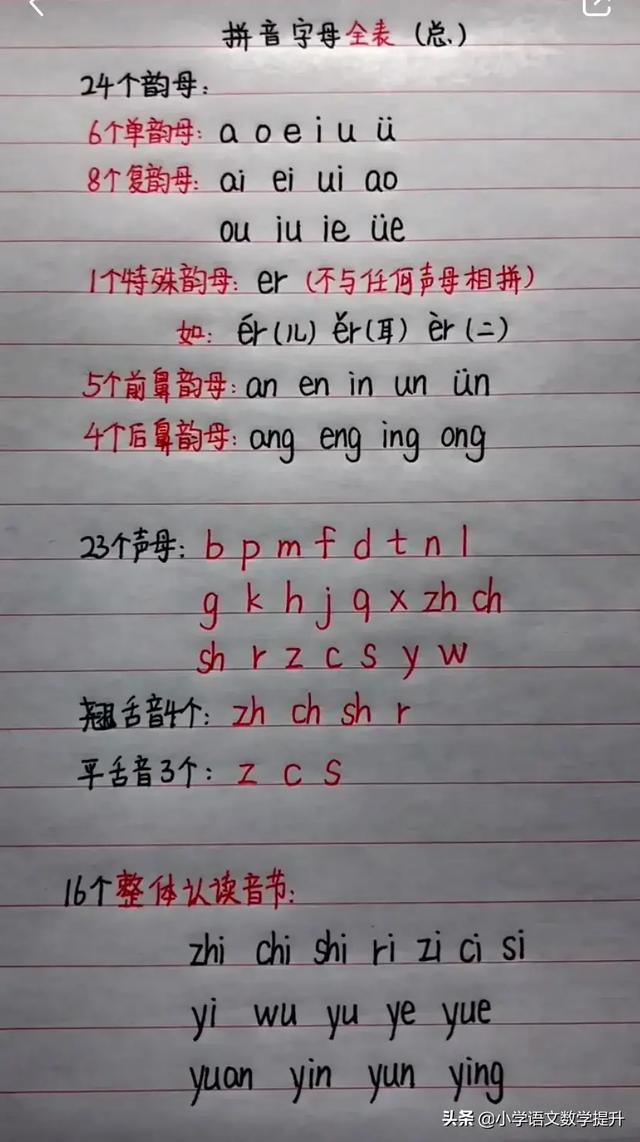 拼音字母全表(总.)
24个韵母:
6个单韵母: a o e i u ü
8个复韵母: ai ei ui ao
ou iu ie üe
1个特殊韵母: er (不与任何声母相拼)
如: ér(儿) ěr(耳) èr(二)
5个前鼻韵母: an en in un ün
4个后鼻韵母: ang eng ing ong
23个声母: b p m f d t n l
g k h j q x zh ch
sh r z c s y w
翘舌音4个: zh ch sh r
平舌音3个: z c s
16个整体认读音节:
zhi chi shi ri zi ci si
yi wu yu ye yue
yuan yin yun ying
头条 @小学语文数学提升